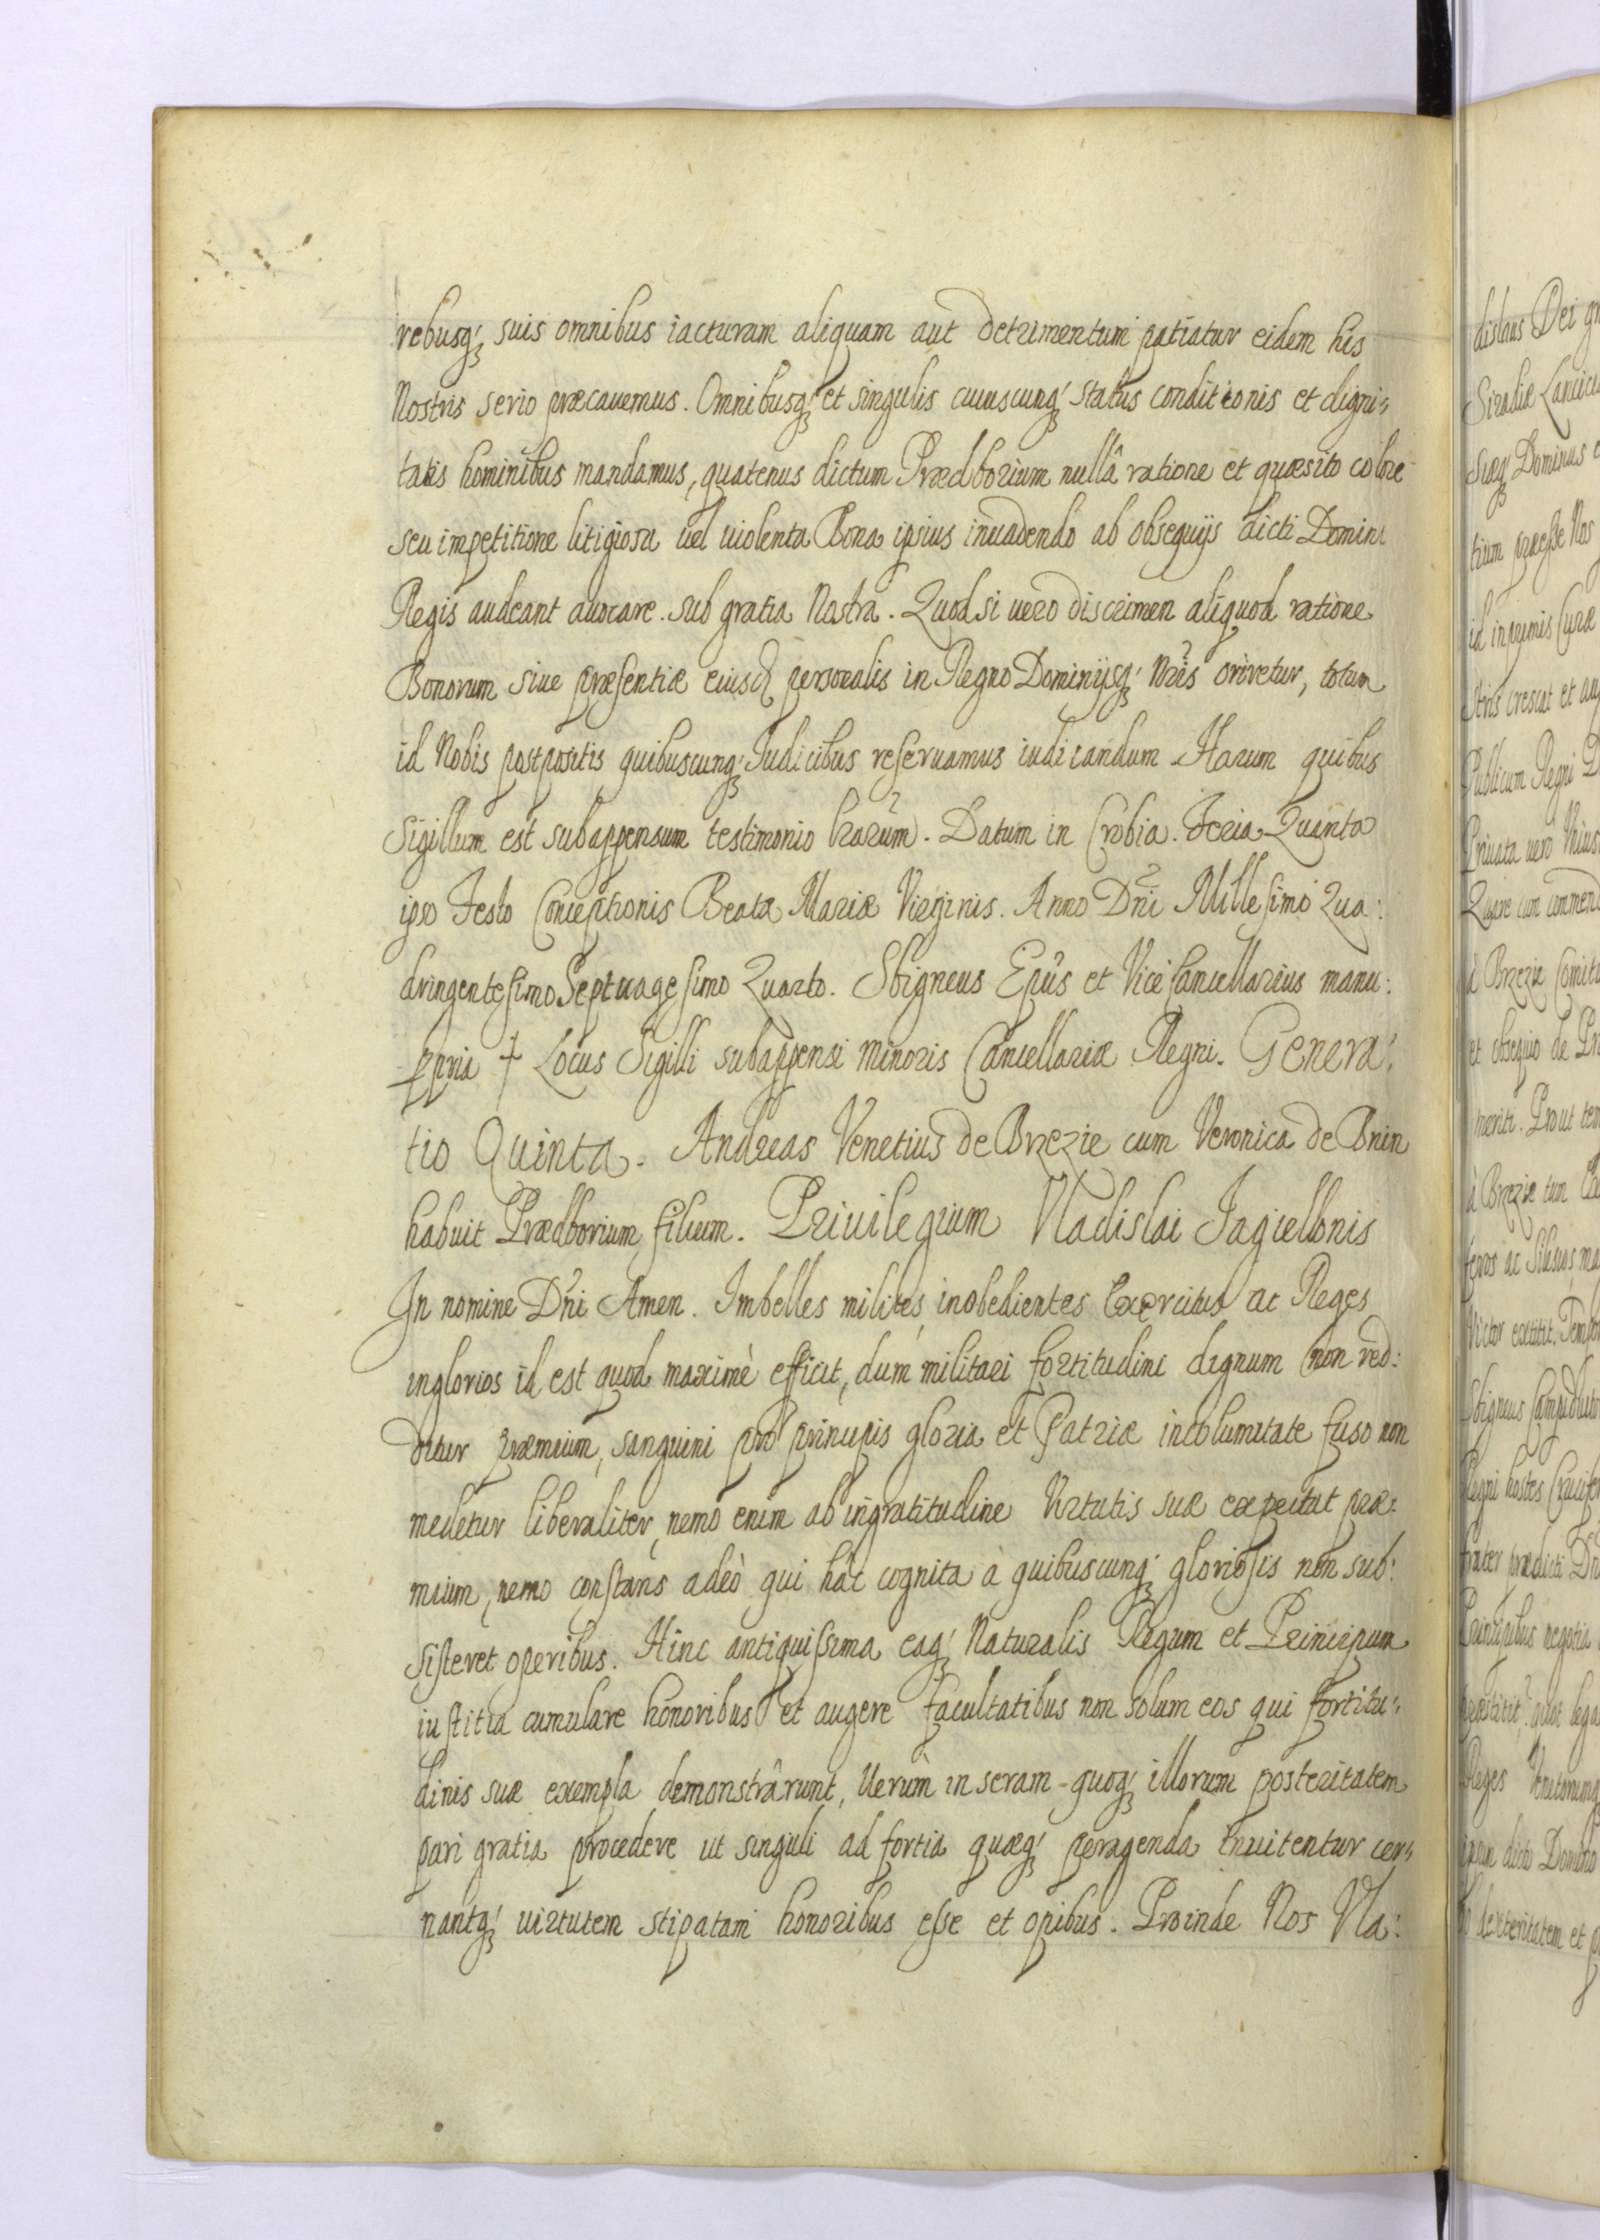 rebusq; suis omnibus iacturam aliquam aut detrimentum patiatur eidem his
Nostris serio præcauemus. Omnibusq; et singulis cuiuscunq; status conditionis et digni„
tatis hominibus mandamus, quatenus dictum Prædborium nullâ ratione et quæsito colore
seu impetitione litigiosa uel uiolenta Bona ipsius inuadendo ab obsequijs dicti Domini
Regis audeant auocare. sub gratia Nostra. Quod si uero discrimen aliquod ratione
Bonorum siue præsentiæ eiusd personalis in Regno Dominijsq; Nris oriretur, totum
id Nobis postpositis quibuscunq; Iudicibus reseruamus iudicandum. Harum quibus
Sigillum est subappensum testimonio lrarum. Datum in Crobia. Feria Quinta
ipso Festo Conceptionis Beatæ Mariæ Virginis. Anno Dni Millesimo Qua:
dringentesimo Septuagesimo Quarto. Sbigneus Epus et Vicecancellarius manu:
ppria † Locus Sigilli subappensi minoris Cancellariæ Regni. Genera:
tio Quinta. Andreas Venetius de Brzezie cum Veronica de Bnin
habuit Prædborium filium. Priuilegium Vladislai Jagiellonis
In nomine Dni Amen. Imbelles milites, inobedientes Exercitus ac Reges
inglorios id est quod maximè efficit, dum militari fortitudini dignum non red:
ditur præmium, sanguini pro principis gloria et Patriæ incolumitate fuso non
medetur liberaliter, nemo enim ab ingratitudine Virtutis suæ expectat præ:
mium, nemo constans adeò qui hâc cognita à quibuscunq; gloriosis non sub:
sisteret operibus. Hinc antiquissima eaq; Naturalis Regum et Principum
iustitia cumulare honoribus et augere facultatibus non solum eos qui fortitu„
dinis suæ exempla demonstrârunt, Uerùm in seram-quoq; illorum posteritatem
pari gratia procedere ut singuli ad fortia quæq; peragenda inuitentur cer„
nantq; uirtutem stipatam honoribus esse et opibus. Proinde Nos Vla: